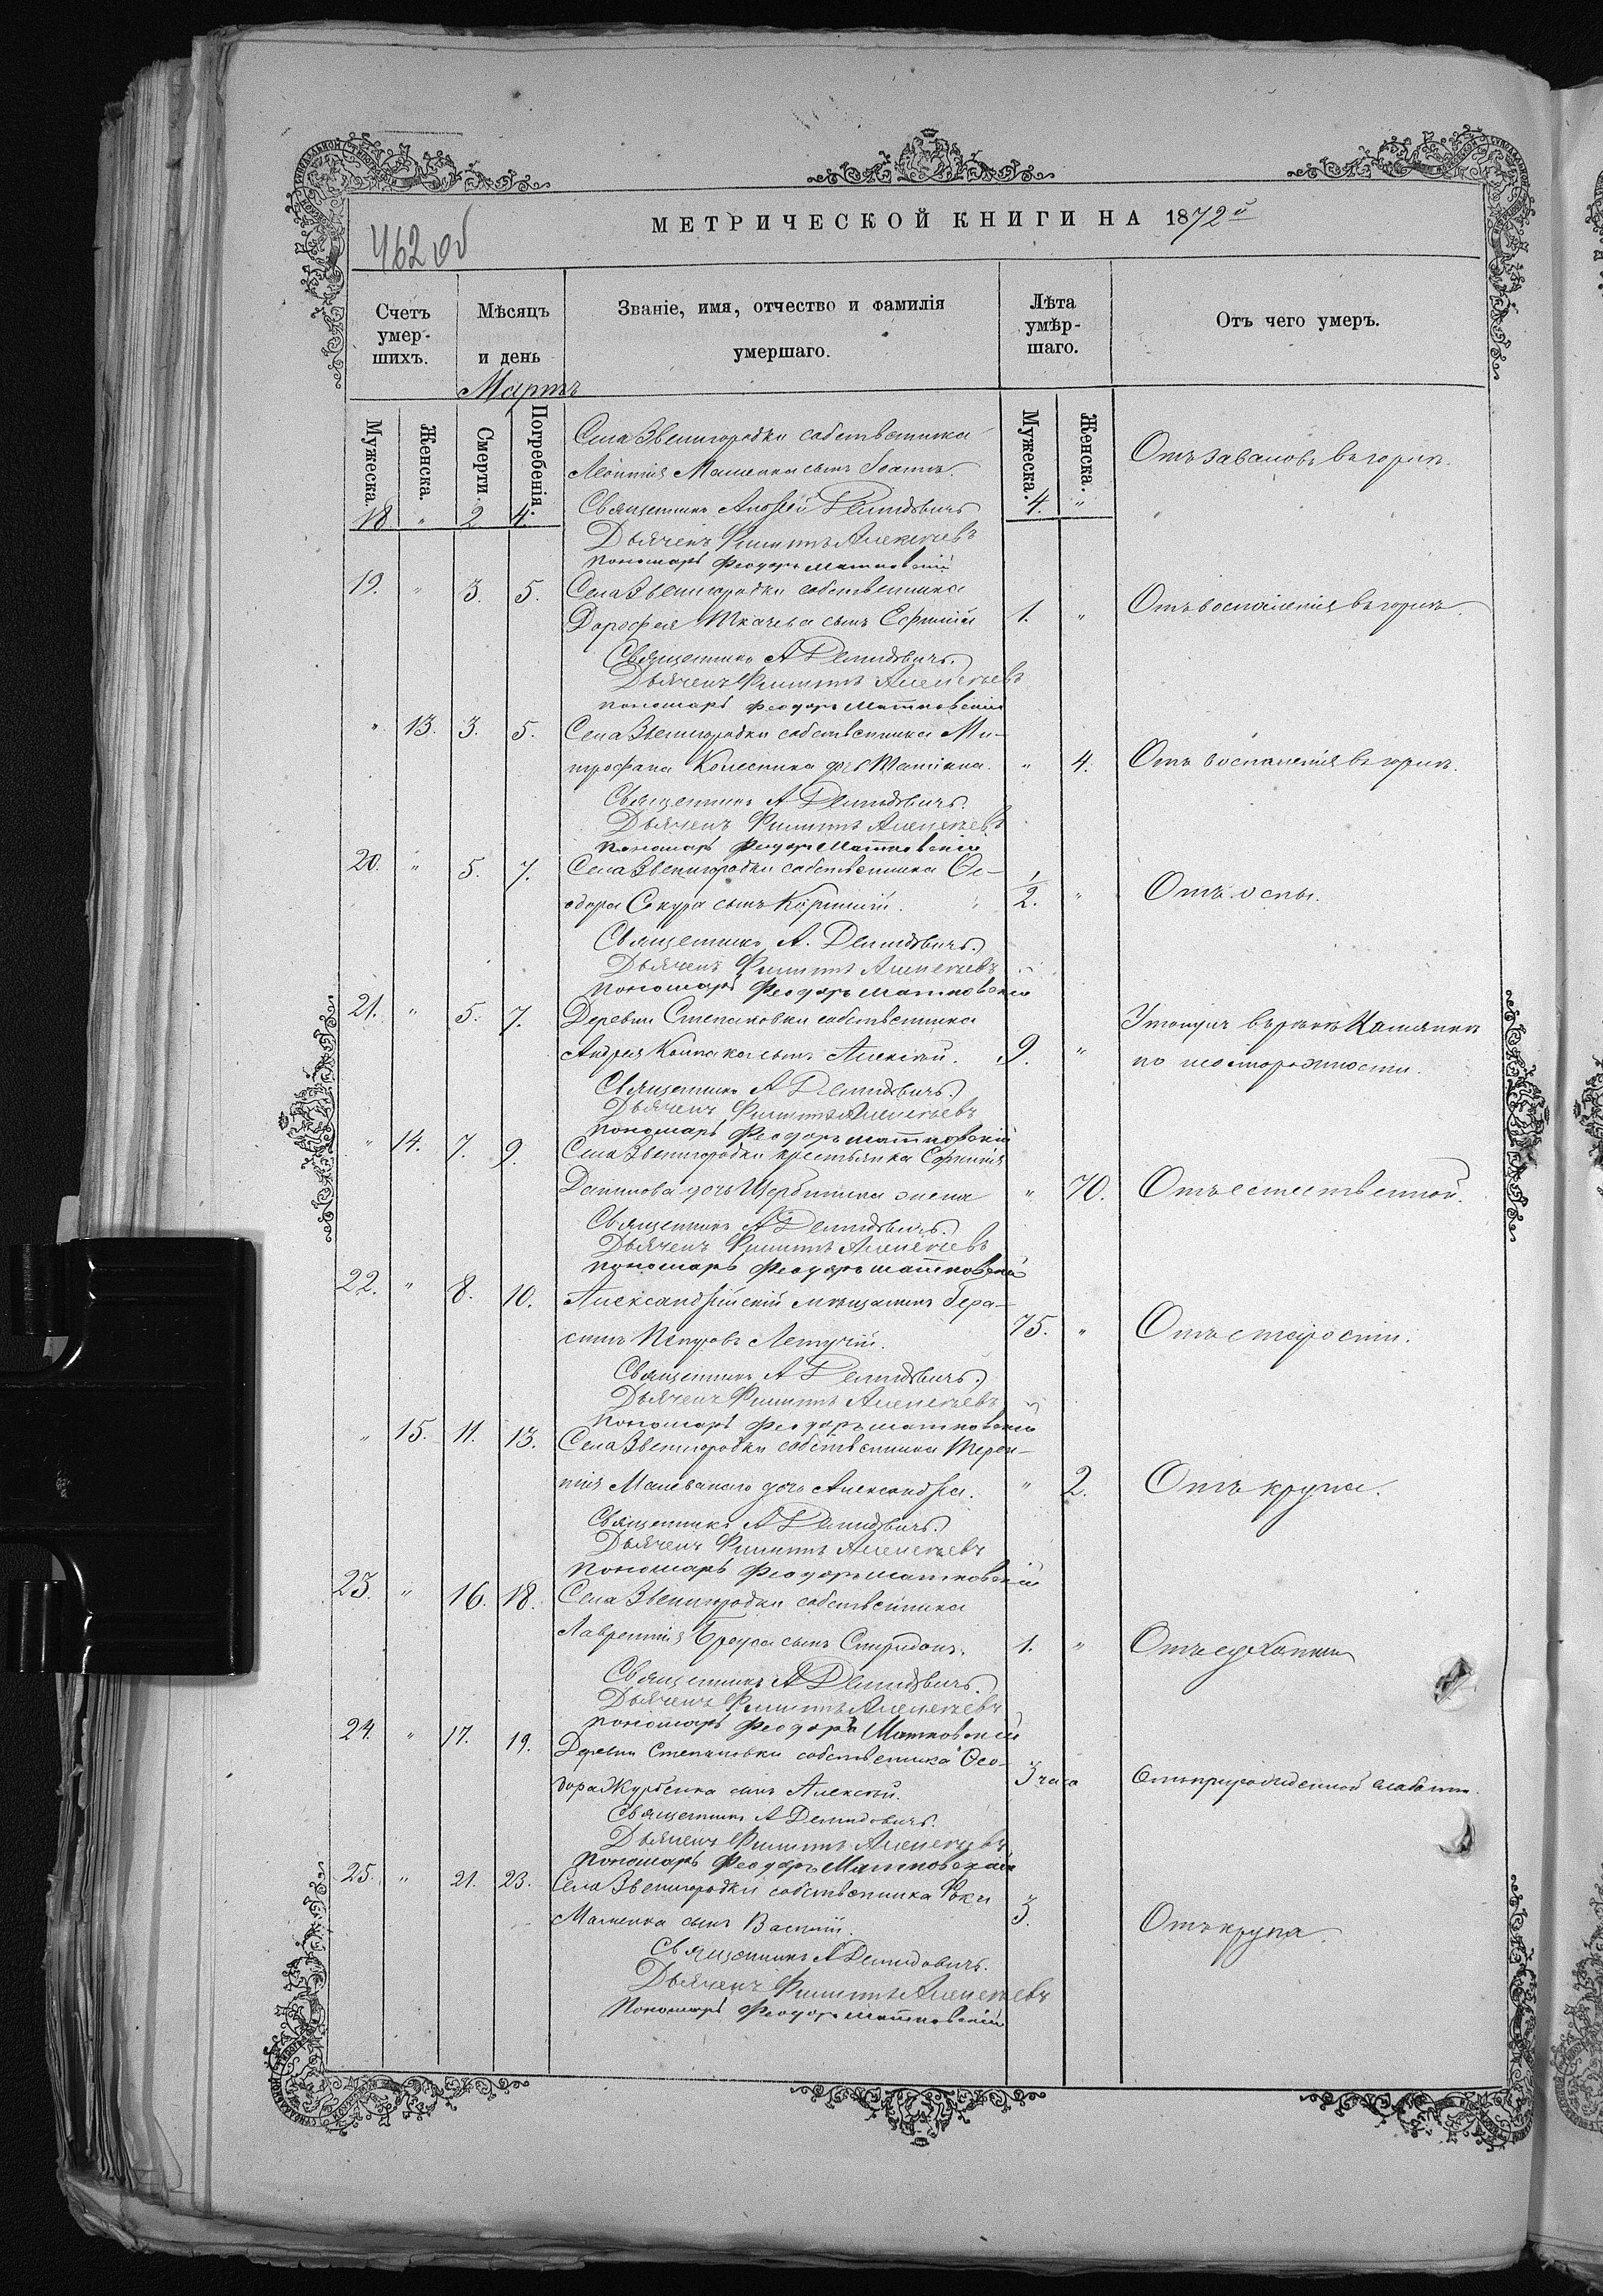 МЕТРИЧЕСКОЙ КНИГИ НА 1872й
462 об
Счетъ умер-шихъ.
Мѣсяцъ и день
Званіе, имя, отчество и фамилія умершаго.
Лѣта умѣр-шаго.
Отъ чего умеръ.
Мартъ
Мужеска.
Женска.
Смерти.
Погребенія.
Мужеска.
Женска.
Села Звенигородки собственника
Леонтія Машенка сынъ Іоаннъ
Отъ заваловъ въ горлѣ.
18 " 2 4.
4. "
Священникъ Андрей Демидовичъ
Дьячекъ Филиппъ Алексѣевъ
Пономарь Феодоръ Матковскій
19. " 3. 5. Села Звенигородки собственника
Дорофея Ткачева сынъ Ефимій 1. " Отъ воспаленія въ горлѣ.
Священникъ А Демидовичъ.
Дьячекъ Филиппъ Алексѣевъ
Пономарь Феодоръ Матковскій
" 13. 3. 5. Села Звенигородки собственника Ми-
трофана Колесника дочь Татіана. " 4. Отъ воспаленія въ горлѣ.
Священникъ А Демидовичъ.
Дьячекъ Филиппъ Алексѣевъ
Пономарь Феодоръ Матковскій
20. " 5. 7. Села Звенигородки собственника Ѳе-
одора Секура сынъ 1/2. " Отъ оспы.
Священникъ А. Демидовичъ.
Дьячекъ Филиппъ Алексѣевъ
Пономарь Феодоръ Матковскій
21. " 5. 7. Деревни Степановки собственника
Андрея сынъ Алексѣй. 9. "
Утонулъ въ рѣкѣ Камянкѣ
по неосторожности.
Священникъ А Демидовичъ.
Дьячекъ Филиппъ Алексѣевъ
Пономарь Феодоръ Матковскій
" 14. 7. 9. Села Звенигородки крестьянка Софинія
Данилова дочь Щербинина жена " 70. Отъ естественной.
Священникъ А Демидовичъ.
Дьячекъ Филиппъ Алексѣевъ
Пономарь Феодоръ Матковскій
22. " 8. 10. Александрійскій мѣщанинъ Гера-
симъ Петровъ Летучій. 75. " Отъ старости.
Священникъ А Демидовичъ.
Дьячекъ Филиппъ Алексѣевъ
Пономарь Феодоръ Матковскій
" 15. 11. 13. Села Звенигородки собственника Терен-
тія Малеванаго дочь Александра. " 2. Отъ крупа.
Священникъ А Демидовичъ.
Дьячекъ Филиппъ Алексѣевъ
Пономарь Феодоръ Матковскій
23. " 16. 18. Села Звенигородки собственника
Лаврентія сынъ Спиридонъ. 1. "
Священникъ А Демидовичъ.
Дьячекъ Филиппъ Алексѣевъ
Пономарь Феодоръ Матковскій
24. " 17. 19. Деревни Степановки собственника Ѳео-
дора Журбенка сынъ Алексѣй. 3 часа Отъ прирожденной слабости.
Священникъ А Демидовичъ.
Дьячекъ Филиппъ Алексѣевъ
Пономарь Феодоръ Матковскій
25. " 21. 23. Села Звенигородки собственника Фоки
Машенка сынъ Василій. 3. Отъ крупа.
Священникъ А Демидовичъ.
Дьячекъ Филиппъ Алексѣевъ
Пономарь Феодоръ Матковскій